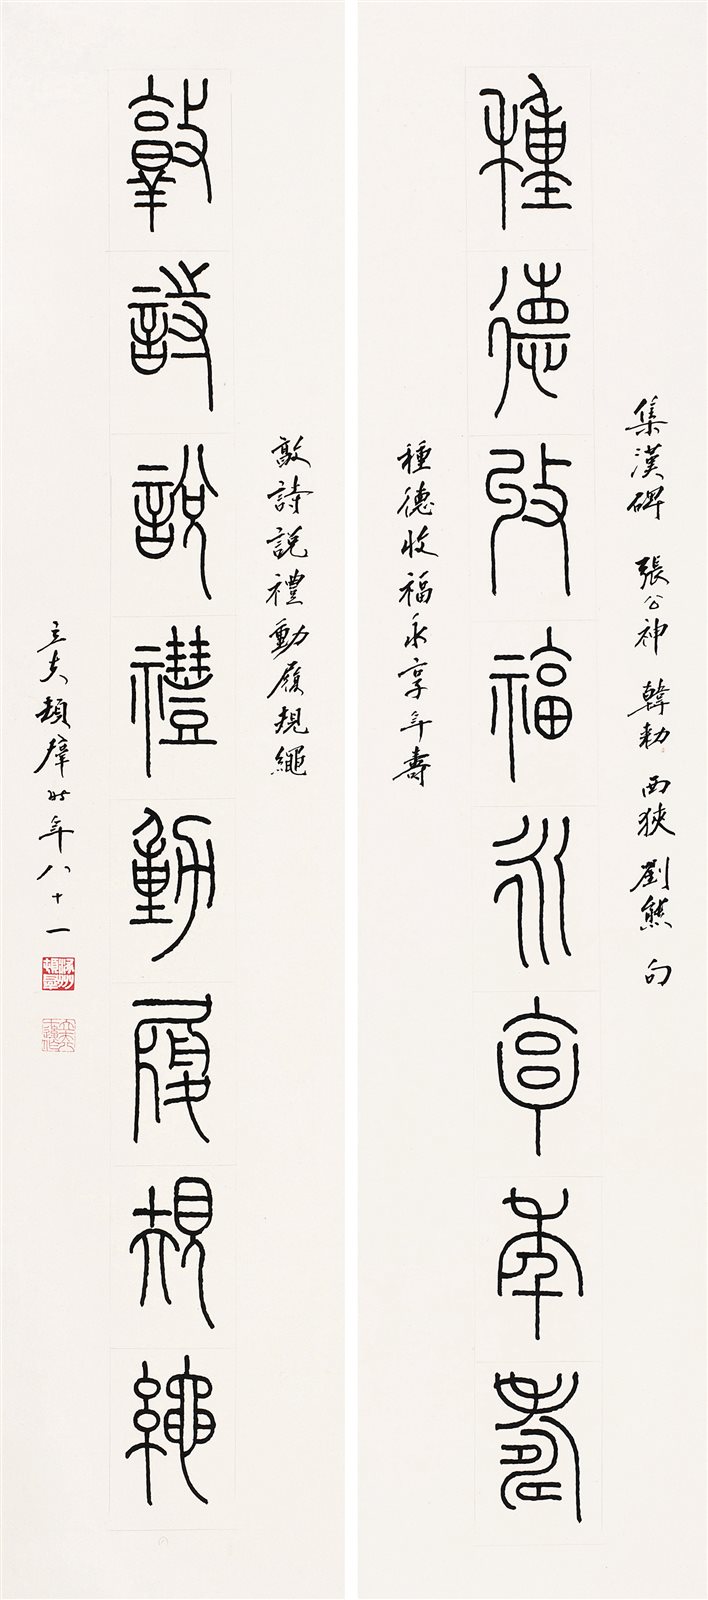 集漢碑 張公神 韓勅 西狹 劉熊 句
種德收福永享年壽
種德收福永享年壽
敦詩說禮動履規繩
敦詩說禮動履規繩
立夫頓群時年八十一